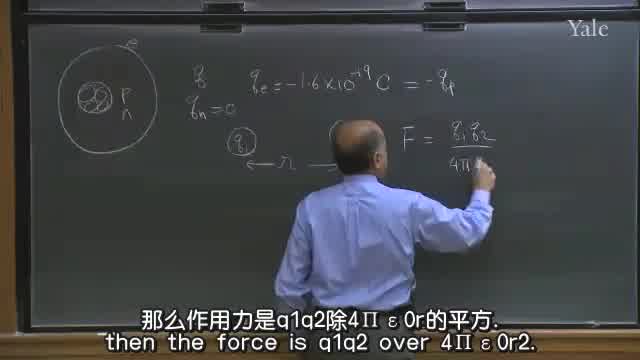 Yale
e
q
q_e = -1.6 × 10^-19 C = -q_p
P
n
q_n = 0
q_1
F = q_1 q_2 / 4π
← r →
那么作用力是q1q2除4Π ε0r的平方.
then the force is q1q2 over 4Π ε0r2.